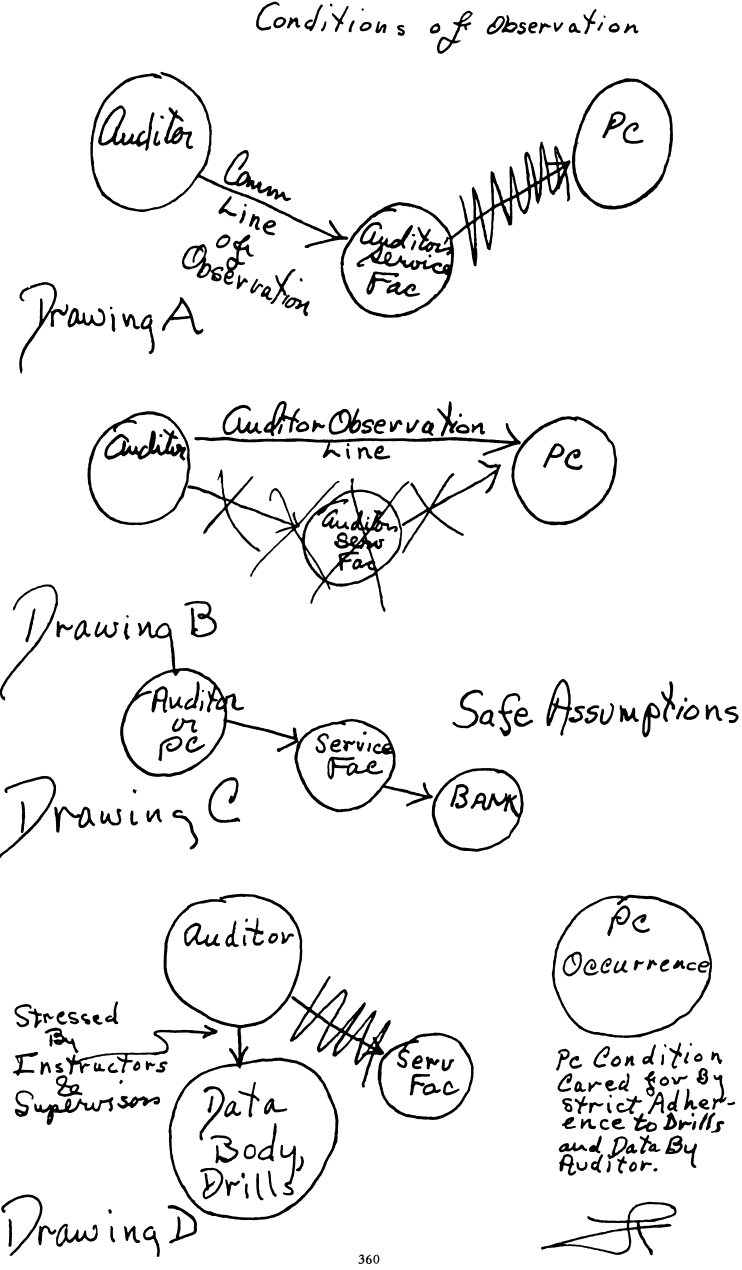 Conditions of Observation
Auditor
Comm
Line
of
Observation
Auditor's
Service
Fac
PC
Drawing A
Auditor
Auditor Observation
Line
PC
Auditors
Serv
Fac
Drawing B
Auditor
or
PC
Service
Fac
BANK
Safe Assumptions
Drawing C
Auditor
Stressed
By
Instructors
&
Supervisors
Serv
Fac
Data
Body,
Drills
PC
Occurrence
Pc Condition
Cared for By
Strict Adher-
ence to Drills
and Data By
Auditor.
Drawing D
360